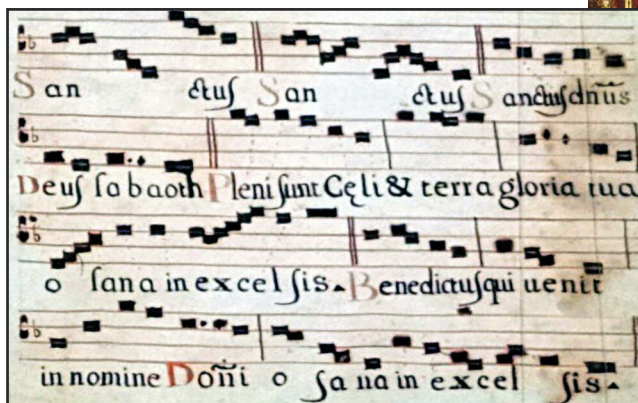 San ctus San ctus Sanctus dn̄us
Deus sabaoth Pleni sunt Cęli & terra gloria tua
o sana in excel sis. Benedictus qui uenit
in nomine Dom̄i o sana in excel sis.